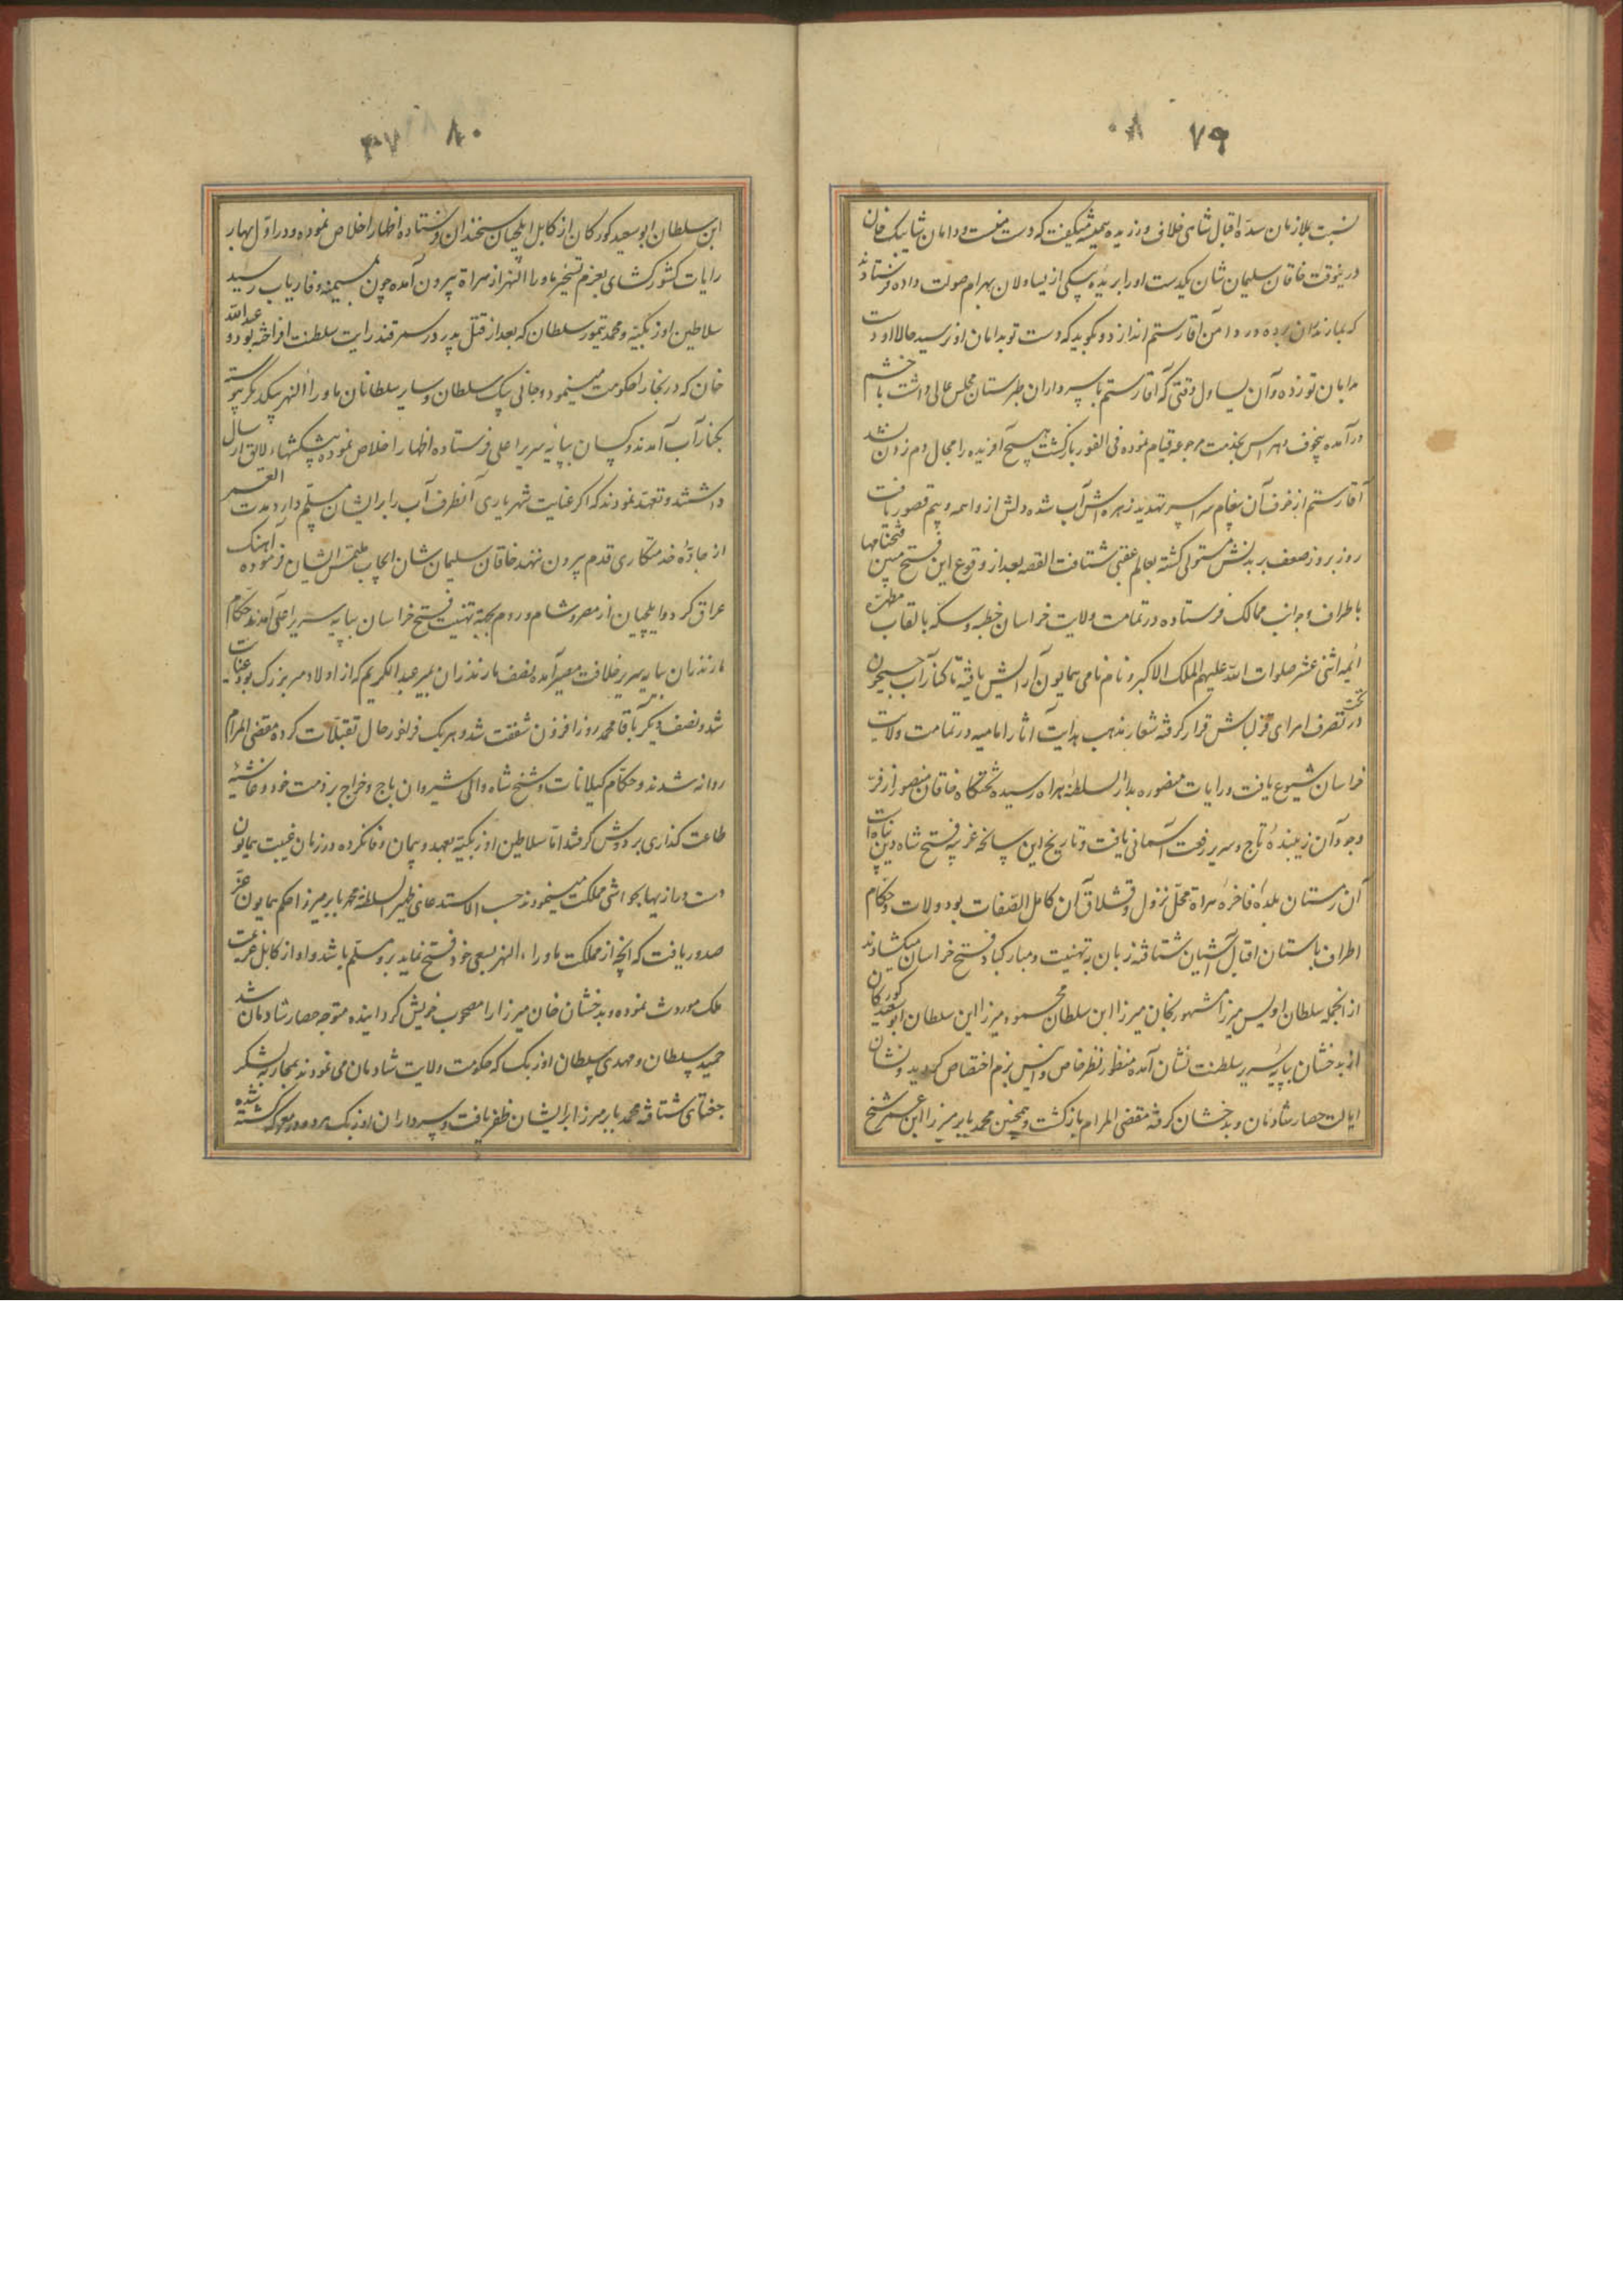 ۷۹
نسبت بملازمان سدّه اقبال شاهی خلاف ورزیده همیشه میگفت که دست منست و دامان شاهی بیک خان
درینوقت خاقان سلیمان شان یکدست او را بریده بیکی از یساولان بهرام صولت داده فرستادند
که بمازندران برده در دامن آقا رستم اندازد و بگوید که دست تو بدامان او نرسید حالا او دست
بدامان تو زده و آن یساول وقتی که آقا رستم با سرداران طبرستان مجلس عالی داشت با خشم
درآمده بیخوف و هراس بخدمت مرجوعه قیام نموده فی الفور بازگشت هیچ آفریده را مجال دم زدن نشد
آقا رستم از خوف آن پیغام سراسر تهدید زهره اش آب شده دلش از واهمه و بیم قصور یافت
روز بروز ضعف بر بدنش مستولی کشته بعالم عقبی شتافت القصه بعد از وقوع این فتح مبین فتحنامها
باطراف و جوانب ممالک فرستاده در تمامت ولایت خراسان خطبه و سکه بالقاب مطهره
ائمه اثنی عشر صلوات الله علیهم الملک الاکبر و نام نامی همایون آرایش یافته تا کنار آب جیحون
در تحت تصرف امرای قزلباش قرار گرفته شعار مذهب هدایت آثار امامیه در تمامت ولایت
خراسان شیوع یافت و رایات منصوره بدار السلطنه هراه رسیده تختگاه خاقان منصور از فرّ
وجود آن زیبندهٔ تاج و سریر رفعت آسمانی یافت و تاریخ این سانحه غریبه فتح شاه دین پناه است
آن زمستان بلدهٔ فاخرهٔ هراة محلّ نزول و قشلاق آن کامل الصّفات بود ولات و حکّام
اطراف باستان اقبال آشیان شتافته زبان به تهنیت و مبارکباد فتح خراسان میکشادند
از انجمله سلطان اویس میرزا مشهور بخان میرزا ابن سلطان محمود میرزا ابن سلطان ابوسعید کورکان
از بدخشان بپایهٔ سریر سلطنت نشان آمده منظور نظر خاص و انیس بزم اختصاص کردید و نشان
ایالت حصار شادمان و بدخشان کرفته مقضی المرام بازگشت و همچنین محمد بابر میرزا ابن عمر شیخ
۸۰
۳۷
ابن سلطان ابوسعید کورکان از کابل ایلچیان سخندان فرستاده اظهار اخلاص نموده و در اوّل بهار
رایات کشورگشای بعزم تسخیر ماوراالنهر از هراة بیرون آمده چون بمیمنه و فاریاب رسید
سلاطین اوزبکیّه و محمد تیمور سلطان که بعد از قتل پدر در سمرقند رایت سلطنت افراخته بود و عبدالله
خان که در بخارا حکومت مینمود و جانی بیک سلطان و سایر سلطانان ماوراالنهر بیکدیگر پیوسته
بکنار آب آمدند و کسان بپایه سریر اعلی فرستاده اظهار اخلاص نموده پیشکشهاء لایق ارسال
داشتند و تعهّد نمودند که اکر عنایت شهریاری آنطرف آب را برایشان مسلّم دارد مدت العمر
از جادّهٔ خدمتکاری قدم بیرون ننهند خاقان سلیمان شان ایجاب ملتمس ایشان فرموده آهنک
عراق کرد و ایلچیان از مصر و شام و روم بجهة تهنیت فتح خراسان بپایه سریر اعلی آمدند حکام
مازندران بپایه سریر خلافت مصیر آمده نصف مازندران بمیر عبدالکریم که از اولاد میر بزرک بود عنایت
شد و نصف دیکر بآقا محمد روزافزون شفقت شد و هریک فراخور حال تقبلات کرده مقضی المرام
روانه شدند و حکّام کیلانات و شیخ شاه والی شیروان باج و خراج بر ذمت خود و غاشیهٔ
طاعت گذاری بر دوش کرفتند امّا سلاطین اوزبکیّه بعهد و پیمان وفا نکرده در زمان غیبت همایون
دست درازیها بحواشی مملکت مینمودند حسب الاستدعای ظهیرالسلطنه محمد بابر میرزا حکم همایون عزّ
صدور یافت که آنچه از مملکت ماوراءالنهر بسعی خود فتح نماید برو مسلّم باشد و او از کابل عزیمت
ملک موروث نموده و بدخشان خان میرزا را مصحوب خویش کردانیده متوجه حصار شادمان شد
حمید سلطان و مهدی سلطان اوزبک که حکومت ولایت شادمان می نمودند بمحاربه لشکر
جغتای شتافته محمد بابر میرزا برایشان ظفر یافت و سرداران اوزبک هر دو در معرکه کشته شده